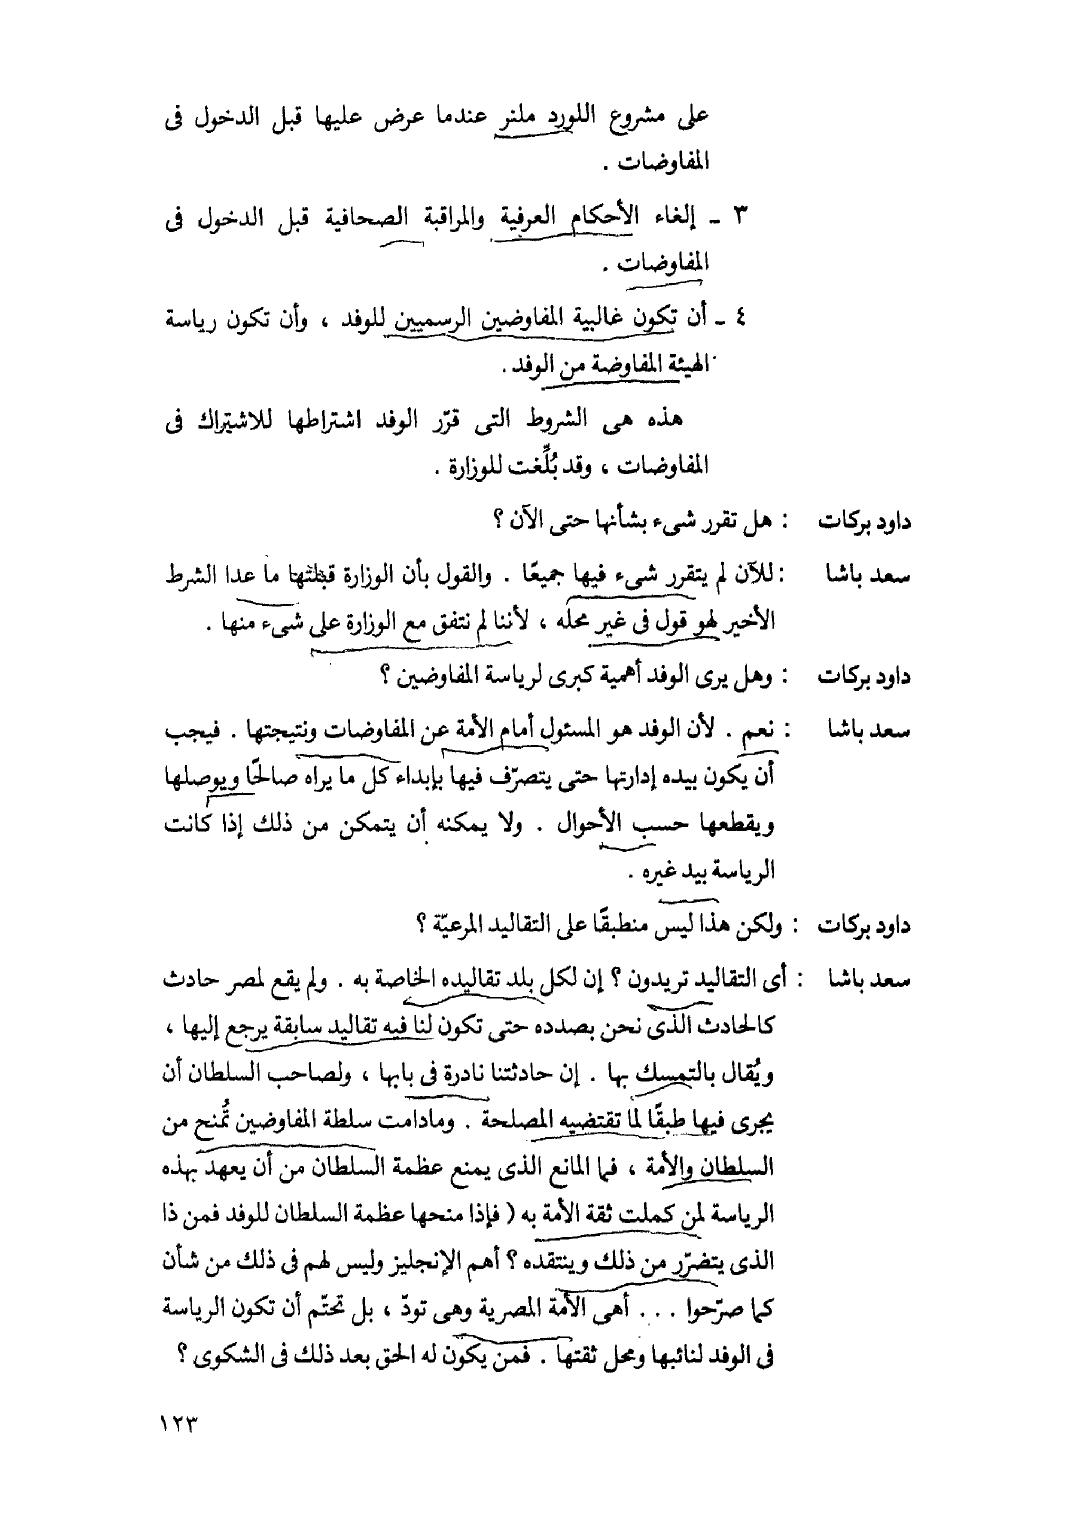 على مشروع اللورد ملنر عندما عرض عليها قبل الدخول فى
المفاوضات .
٣ ـ إلغاء الأحكام العرفية والمراقبة الصحافية قبل الدخول فى
المفاوضات .
٤ ـ أن تكون غالبية المفاوضين الرسميين للوفد ، وأن تكون رياسة
الهيئة المفاوضة من الوفد .
هذه هى الشروط التى قرّر الوفد اشتراطها للاشتراك فى
المفاوضات ، وقد بُلِّغت للوزارة .
داود بركات : هل تقرر شىء بشأنها حتى الآن ؟
سعد باشا : للآن لم يتقرر شىء فيها جميعًا . والقول بأن الوزارة قبلتها ما عدا الشرط
الأخير لهو قول فى غير محله ، لأننا لم نتفق مع الوزارة على شىء منها .
داود بركات : وهل يرى الوفد أهمية كبرى لرياسة المفاوضين ؟
سعد باشا : نعم . لأن الوفد هو المسئول أمام الأمة عن المفاوضات ونتيجتها . فيجب
أن يكون بيده إدارتها حتى يتصرّف فيها بإبداء كل ما يراه صالحًا ويوصلها
ويقطعها حسب الأحوال . ولا يمكنه أن يتمكن من ذلك إذا كانت
الرياسة بيد غيره .
داود بركات : ولكن هذا ليس منطبقًا على التقاليد المرعيّة ؟
سعد باشا : أى التقاليد تريدون ؟ إن لكل بلد تقاليده الخاصة به . ولم يقع لمصر حادث
كالحادث الذى نحن بصدده حتى تكون لنا فيه تقاليد سابقة يرجع إليها ،
ويُقال بالتمسك بها . إن حادثتنا نادرة فى بابها ، ولصاحب السلطان أن
يجرى فيها طبقًا لما تقتضيه المصلحة . ومادامت سلطة المفاوضين تُمنح من
السلطان والأمة ، فما المانع الذى يمنع عظمة السلطان من أن يعهد بهذه
الرياسة لمن كملت ثقة الأمة به ( فإذا منحها عظمة السلطان للوفد فمن ذا
الذى يتضرّر من ذلك وينتقده ؟ أهم الإنجليز وليس لهم فى ذلك من شأن
كما صرّحوا . . . أهى الأمة المصرية وهى تودّ ، بل تحتّم أن تكون الرياسة
فى الوفد لنائبها ومحل ثقتها . فمن يكون له الحق بعد ذلك فى الشكوى ؟
١٢٣